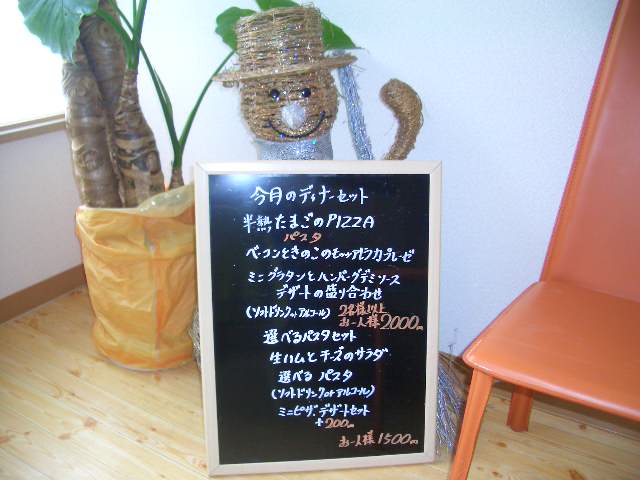 今月のディナーセット
半熟たまごのPIZZA
パスタ
ベーコンときのこの
ミニグラタンとハンバーグデミソース
デザートの盛り合わせ
(ソフトドリンクorアルコール) 2名様以上
お一人様2000円
選べるパスタセット
生ハムとチーズのサラダ
選べるパスタ
(ソフトドリンクorアルコール)
ミニピザ、デザートセット
+200円
お一人様1500円